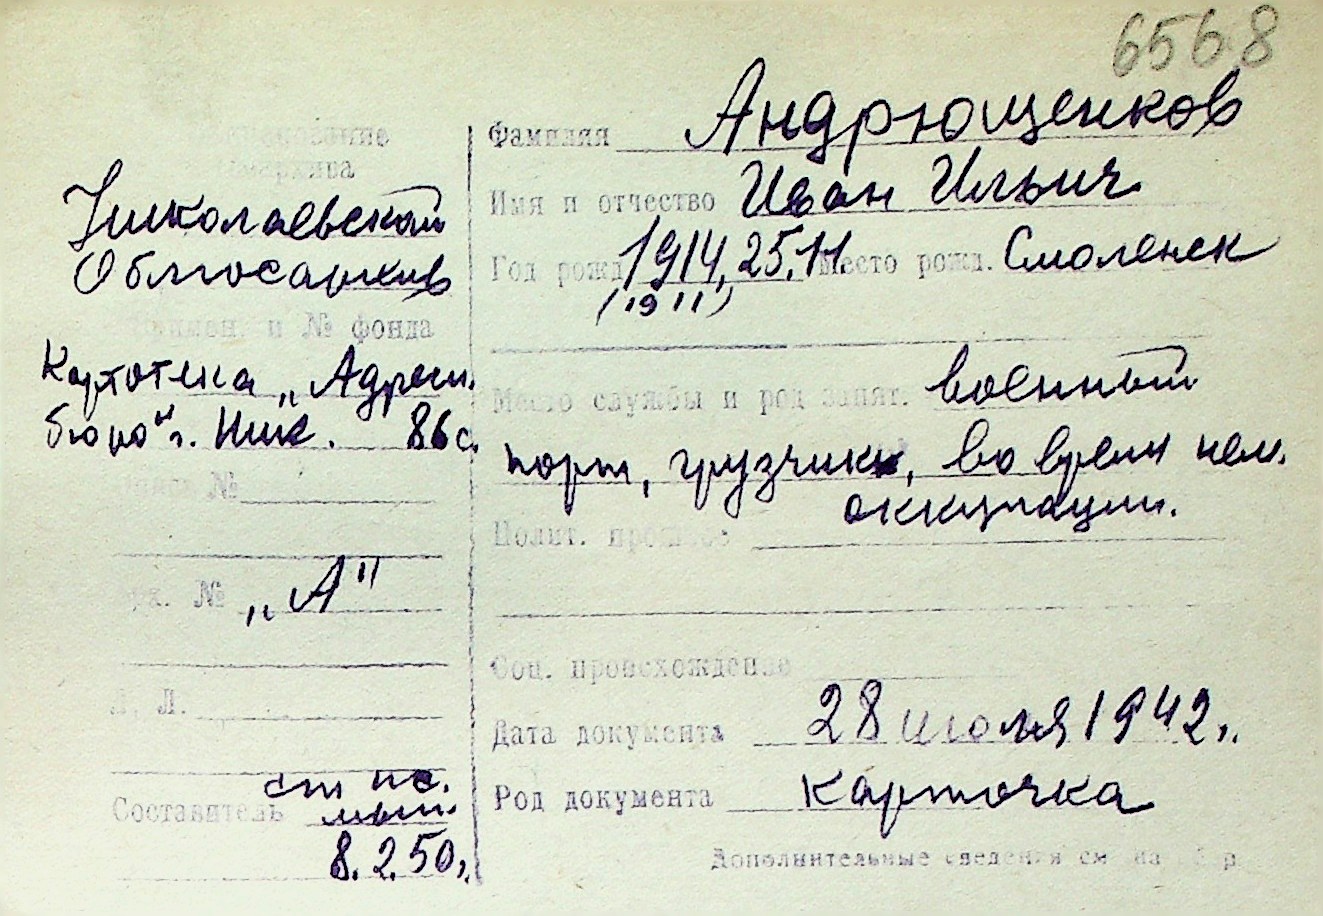 6568
Фамилия Андрющенков
Имя и отчество Иван Ильич
Год рожд. 1914, 25.11. Место рожд. Смоленск
(1911)
Место службы и род занят. военный
порт, грузчик, во время нем.
оккупации.
Полит. прошлое
Соц. происхождение
Дата документа 28 июля 1942 г.
Род документа карточка
Дополнительные сведения см на обор
Наименование
госархива
Николаевский
Облгосархив
Наимен. и № фонда
Картотека „Адресн.
бюро" г. Ник. 86с.
Опись №
Арх. № „А"
Л. Л.
Составитель
8.2.50 г.